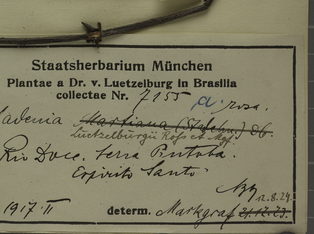 Staatsherbarium München
Plantae a Dr. v. Luetzelburg in Brasilia
collectae Nr. 7155 a. rosa.
Martiana (Stadelm.) DC.
Luetzelburgii Ross et Mgf.
Rio Doce. Serra Pintoba.
Espirito Santo
12.8.24.
1917. II determ. Markgraf 21.12.23.